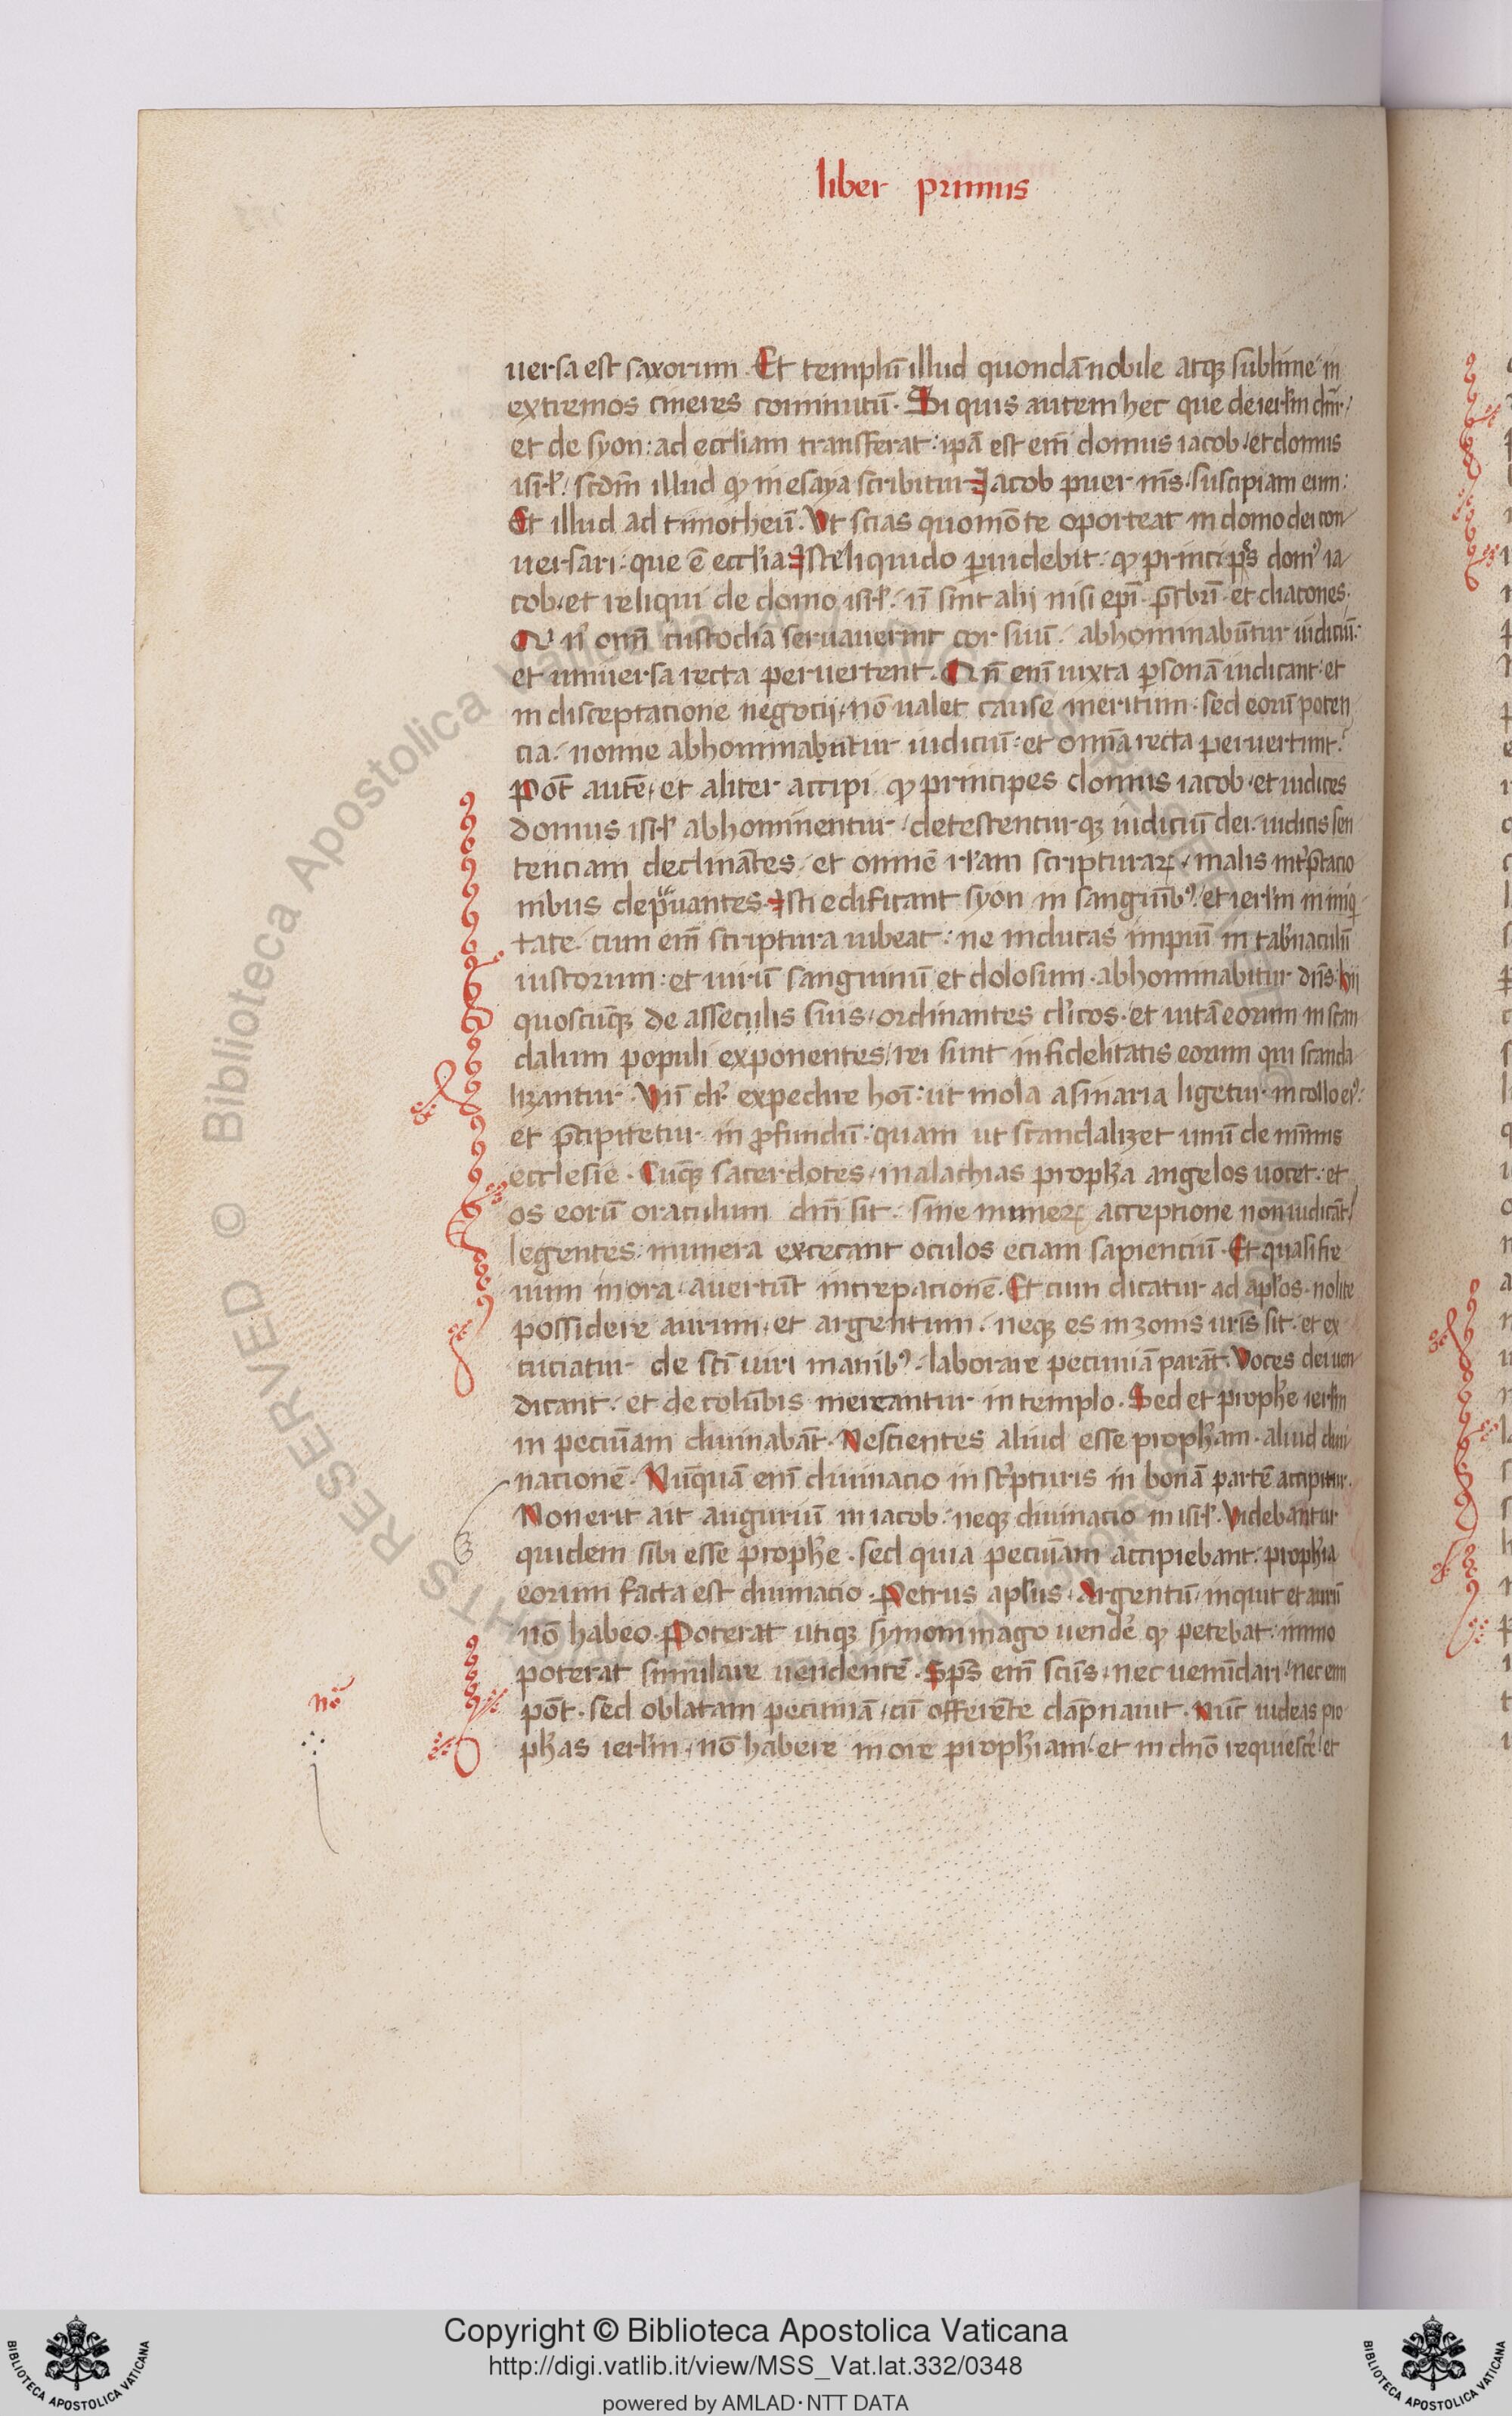 liber primus
uersa est saxorum. Et templū illud quondā nobile atqꝫ sublime in
extremos cineres cōminutū. Si quis autem hec que de ierlm̄ dn̄r
et de syon: ad eccl̄iam transferat: ipā est em̄ domus iacob, et domus
isrl̄, scdm̄ illud qd̄ in esaya scribitur Jacob puer ms̄ suscipiam eum:
Et illud ad timotheū. Vt scias quomō te oporteat in domo dei con
uersari: que ē eccl̄ia Iste liquido puidebit. qd̄ princips domꝰ ia
cob, et reliqui de domo isrl̄. n̄ sint alij nisi epī. prb̄ri et diacones.
Qui n̄ om̄i custodia seruauerint cor suū. abhominabūtur iudiciū:
et uniuersa recta peruertent. Qn̄ em̄ iuxta ꝑsonā iudicant: et
in disceptacione negocij, nō ualet cause meritum. sed eorū poten
cia. nonne abhominabūtur iudiciū: et omīa recta peruertunt?
Pot̄ autē, et aliter accipi. qd̄ principes domus iacob. et iudices
domus isrl̄ abhominentur, detestenturqꝫ iudiciū dei. iudicis sen
tenciam declinātes, et omnē illam scripturaꝝ, malis int̄ptacio
nibus deprauantes. Isti edificant syon in sanguībꝰ. et ierlm̄ in iniq
tate. cum em̄ scriptura iubeat: ne inducas impiū in tabnaculū
iustorum: et uirū sanguinū et dolosum. abhominabitur dn̄s. hij
quoscūqꝫ de asseculis suis, ordinantes clicos. et uitā eorum in scan
dalum populi exponentes, rei sunt infidelitatis eorum qui scanda
lizantur. Vn̄ dr̄ expedire hoī: ut mola asinaria ligetur in collo eiꝰ:
et p̄cipitetur in ꝓfundū: quam ut scandalizet unū de minimis
ecclesie. Cūqꝫ sacerdotes, malachias propħa angelos uocet. et
os eorū oraculum dn̄i sit. sine muneꝝ acceptione non iudicāt,
legentes. munera excecant oculos eciam sapienciū. Et quasi fre
num in ora, auertūt increpacionē. Et cum dicatur ad apl̄os. nolite
possidere aurum, et argentum. neqꝫ es in zonis uris̄ sit. et ex
cuciatur de sc̄i uiri manibꝰ. laborare pecuniā parāt. Voces dei uen
dicant. et de colūbis mercantur in templo. Sed et prophe ierlm̄
in pecūiam diuinabāt. Nescientes aliud esse propħam. aliud diui
nacionē. Nūquā em̄ diuinacio in scripturis in bonā partē accipitur.
Non erit ait auguriū in iacob. neqꝫ diuinacio in isrl̄. Videbantur
quidem sibi esse prophe. sed quia pecūiam accipiebant. propħia
eorum facta est diuinacio. Petrus apl̄us. Argentū, inquit et aurū
nō habeo. Poterat utiqꝫ symoni mago uende qd̄ petebat. immo
poterat simulare uendentē. Sp̄s em̄ sc̄us, nec uenūdari, nec emi
pot̄. sed oblatam pecuniā, cū offerēte dāpnauit. Nūc uideas pro
phas ierlm̄, nō habere in ore prophiam, et in dn̄o requiesce, et
nō
Copyright © Biblioteca Apostolica Vaticana
http://digi.vatlib.it/view/MSS_Vat.lat.332/0348
powered by AMLAD·NTT DATA
BIBLIOTECA APOSTOLICA VATICANA
BIBLIOTECA APOSTOLICA VATICANA